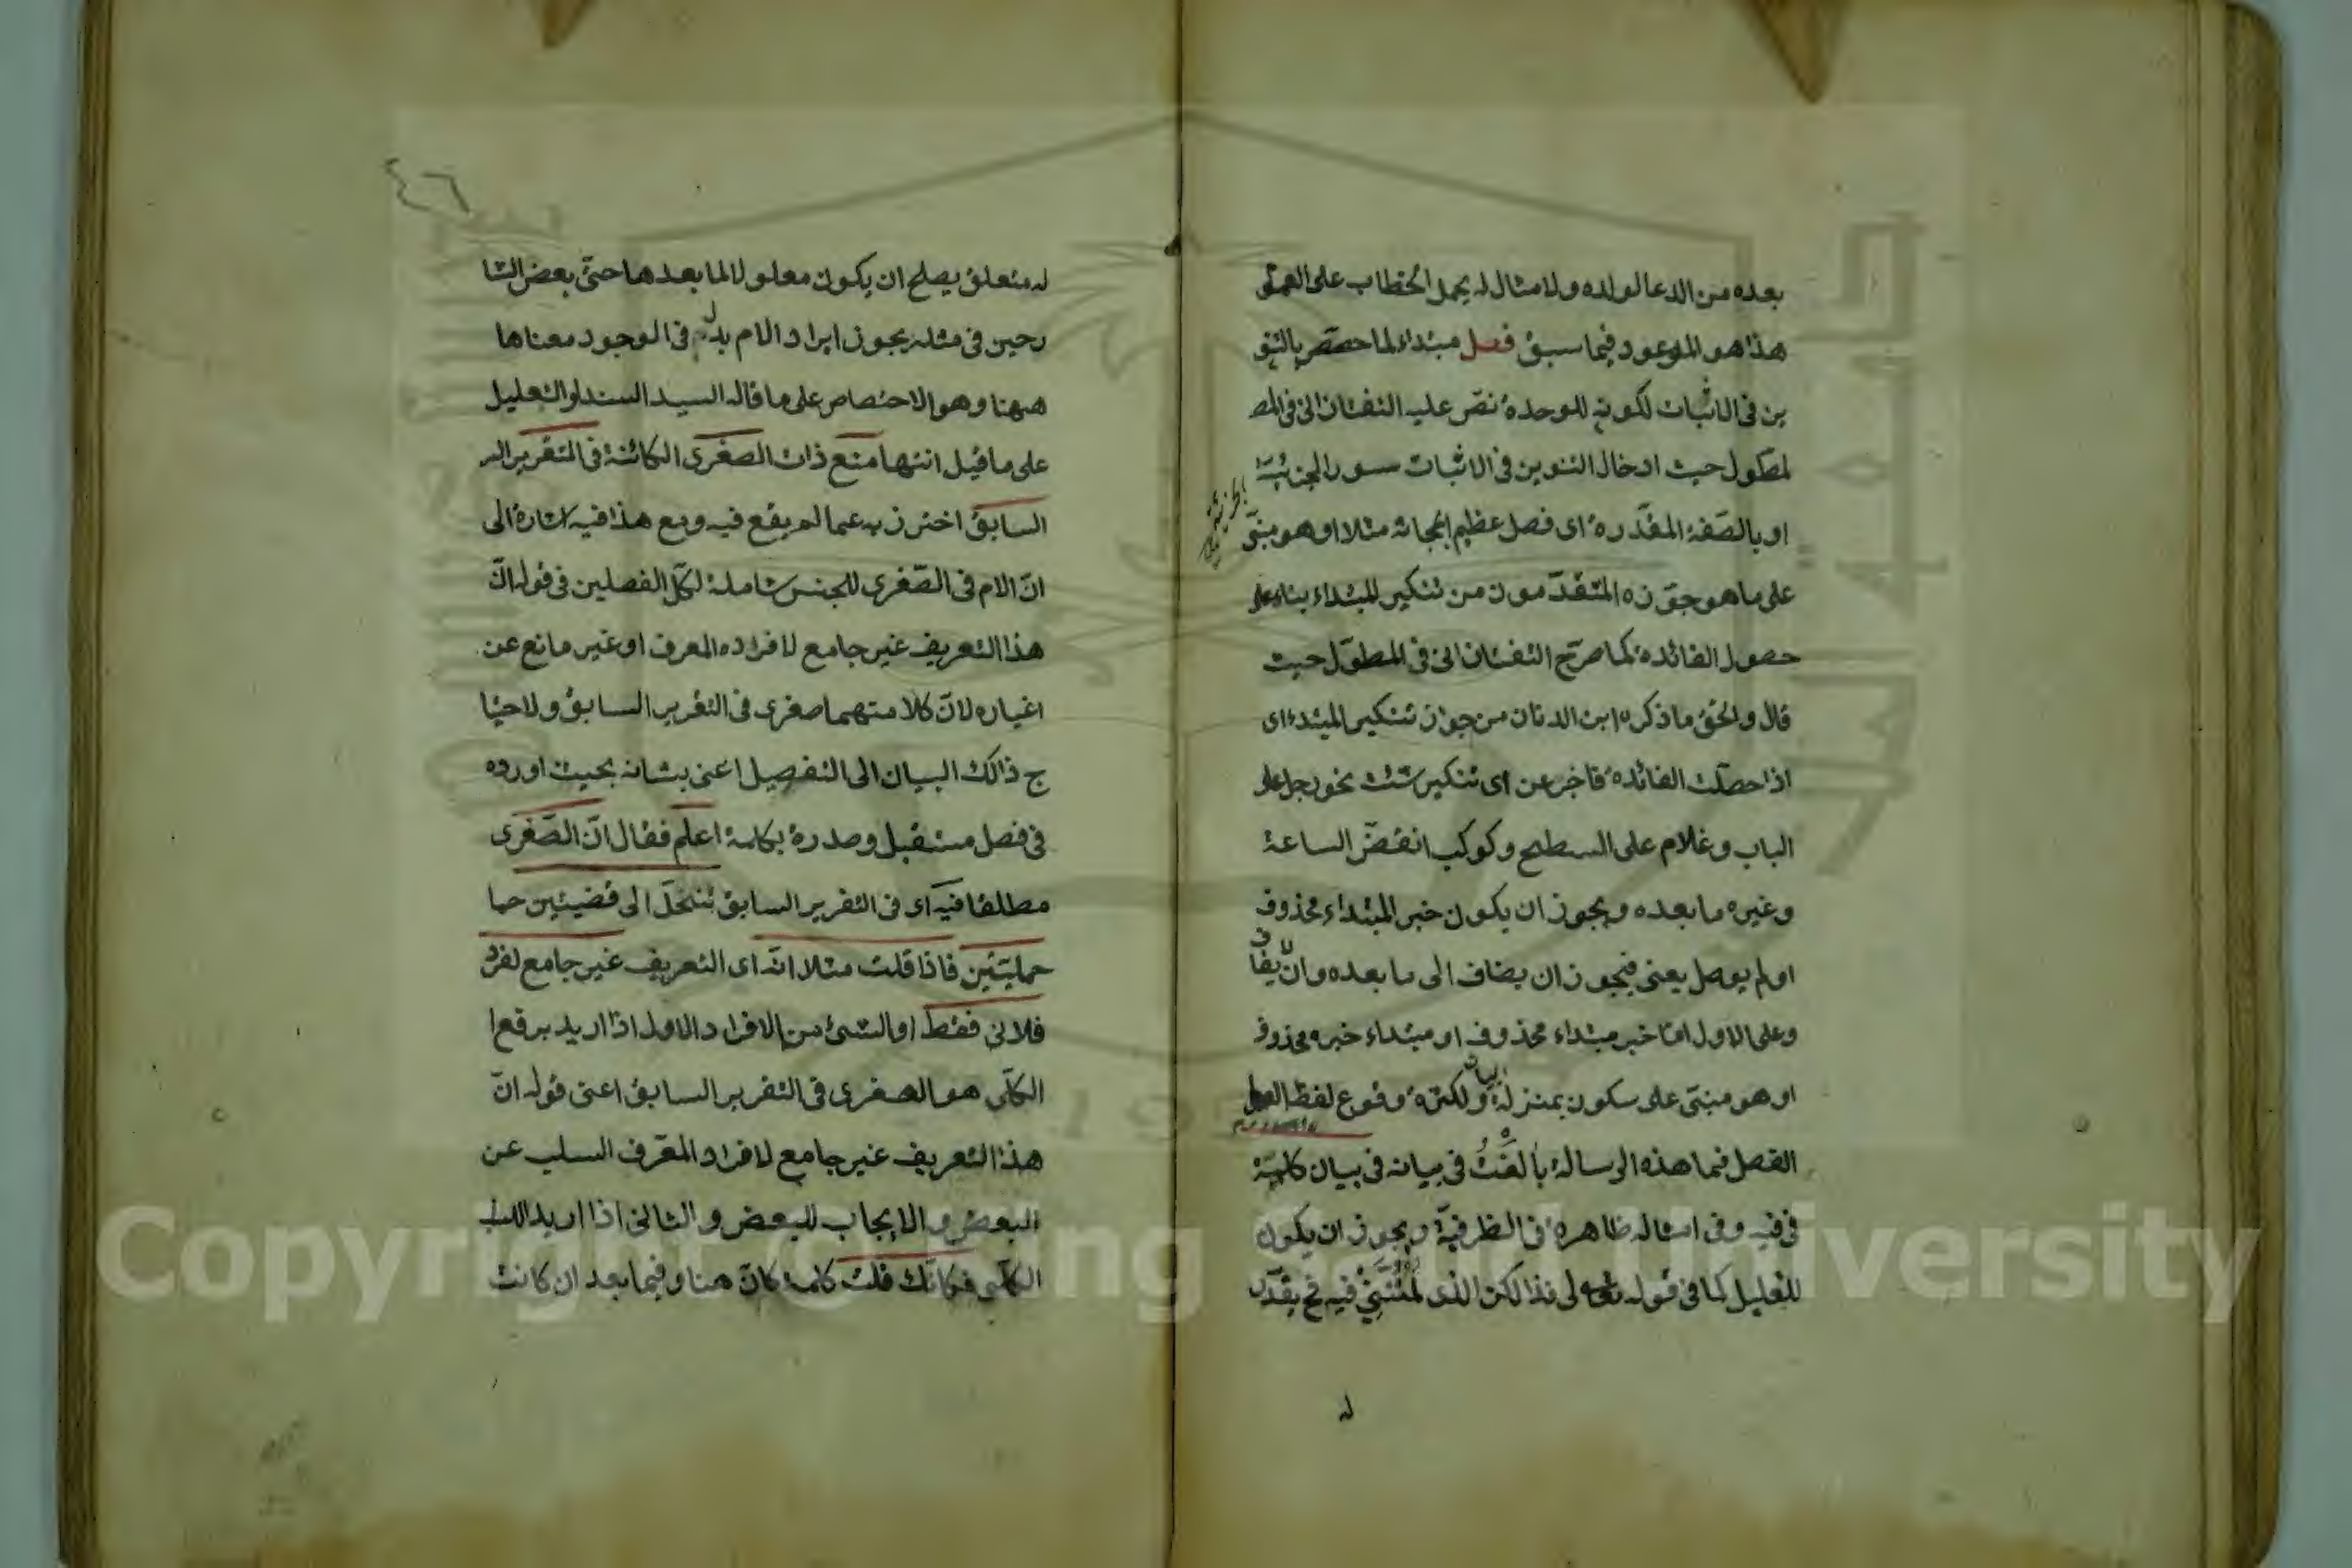 بعده من الدعا لولده ولامثال له يحمل الخطاب على
هذا هو الموعود فيما سبق فصل مبتداء لما حصص بالتنو
ين فى الاثبات لكونه للوحدة نص عليه التفتازانى فى المط
لمطول حيث ادخال التنوين فى الاثبات سور الجزئية
او بالصفة المقدرة اى فصل عظيم ابحاثه مثلا او هو مبنى
على ما هو جوّزه المتقدّمون من تنكير المبتداء بناء على
حصول الفائدة كما صرّح التفتازانى فى المطوّل حيث
قال والحق ما ذكره ابن الدنان من جواز تنكير المبتداء
اذا حصلت الفائدة فاخبر عن اى تنكير شئت نحو رجل على
الباب وغلام على السطح وكوكب انقضّ الساعة
وغيره ما بعده ويجوز ان يكون خبر المبتداء محذوف
او لم يوصل يعنى فيجوز ان يضاف الى ما بعده وان لا يضاف
وعلى الاول امّا خبر مبتداء محذوف او مبتداء خبره محذوف
او هو مبنى على سكون بمنزلة ولكثرة وقوع لفظ
الفصل فيما هذه الرسالة بالغت فى بيانه فى بيان كلمة
فى فيه وفى امثاله ظاهرة فى الظرفية ويجوز ان يكون
للتعليل كما فى قوله تعالى فذالكن الذى لمتننى فيه فح يقدّر
له
٤٦
له متعلق يصلح ان يكون معلولا لما بعدها حتى بعض الشا
رحين فى مثله يجوز ايراد الام بدل فى الوجود معناها
ههنا وهو الاختصاص على ما قاله السيد السند او التعليل
على ما قيل انتها منع ذات الصغرى الكائنة فى التقرير
السابق اخترز به عما لم يقع فيه ومع هذا فيه اشارة الى
انّ الام فى الصّغرى للجنس شاملة لكلّ الفصلين فى قوله انّ
هذا التعريف غير جامع لافراده المعرف او غير مانع عن
اغياره لانّ كلا منهما صغرى فى التقرير السابق ولاحتيا
ج ذالك البيان الى التفصيل اعنى بشانه بحيث اورده
فى فصل مستقبل وصدره بكلمة اعلم فقال انّ الصّغرى
مطلقا فيه اى فى التقرير السابق تنحلّ الى قضيتين حما
حمليّتين فاذا قلت مثلا انّه اى التعريف غير جامع لفرد
فلانى فقط او الشئ من الافراد الاول اذا اريد برفع ا
الكلّى هو الصغرى فى التقرير السابق اعنى قوله انّ
هذا التعريف غير جامع لافراد المعرّف السلب عن
البعض والايجاب للبعض والثانى اذا اريد السلب
الكلّى فكانّك قلت كلمة كانّ هنا وفيما بعد ان كانت